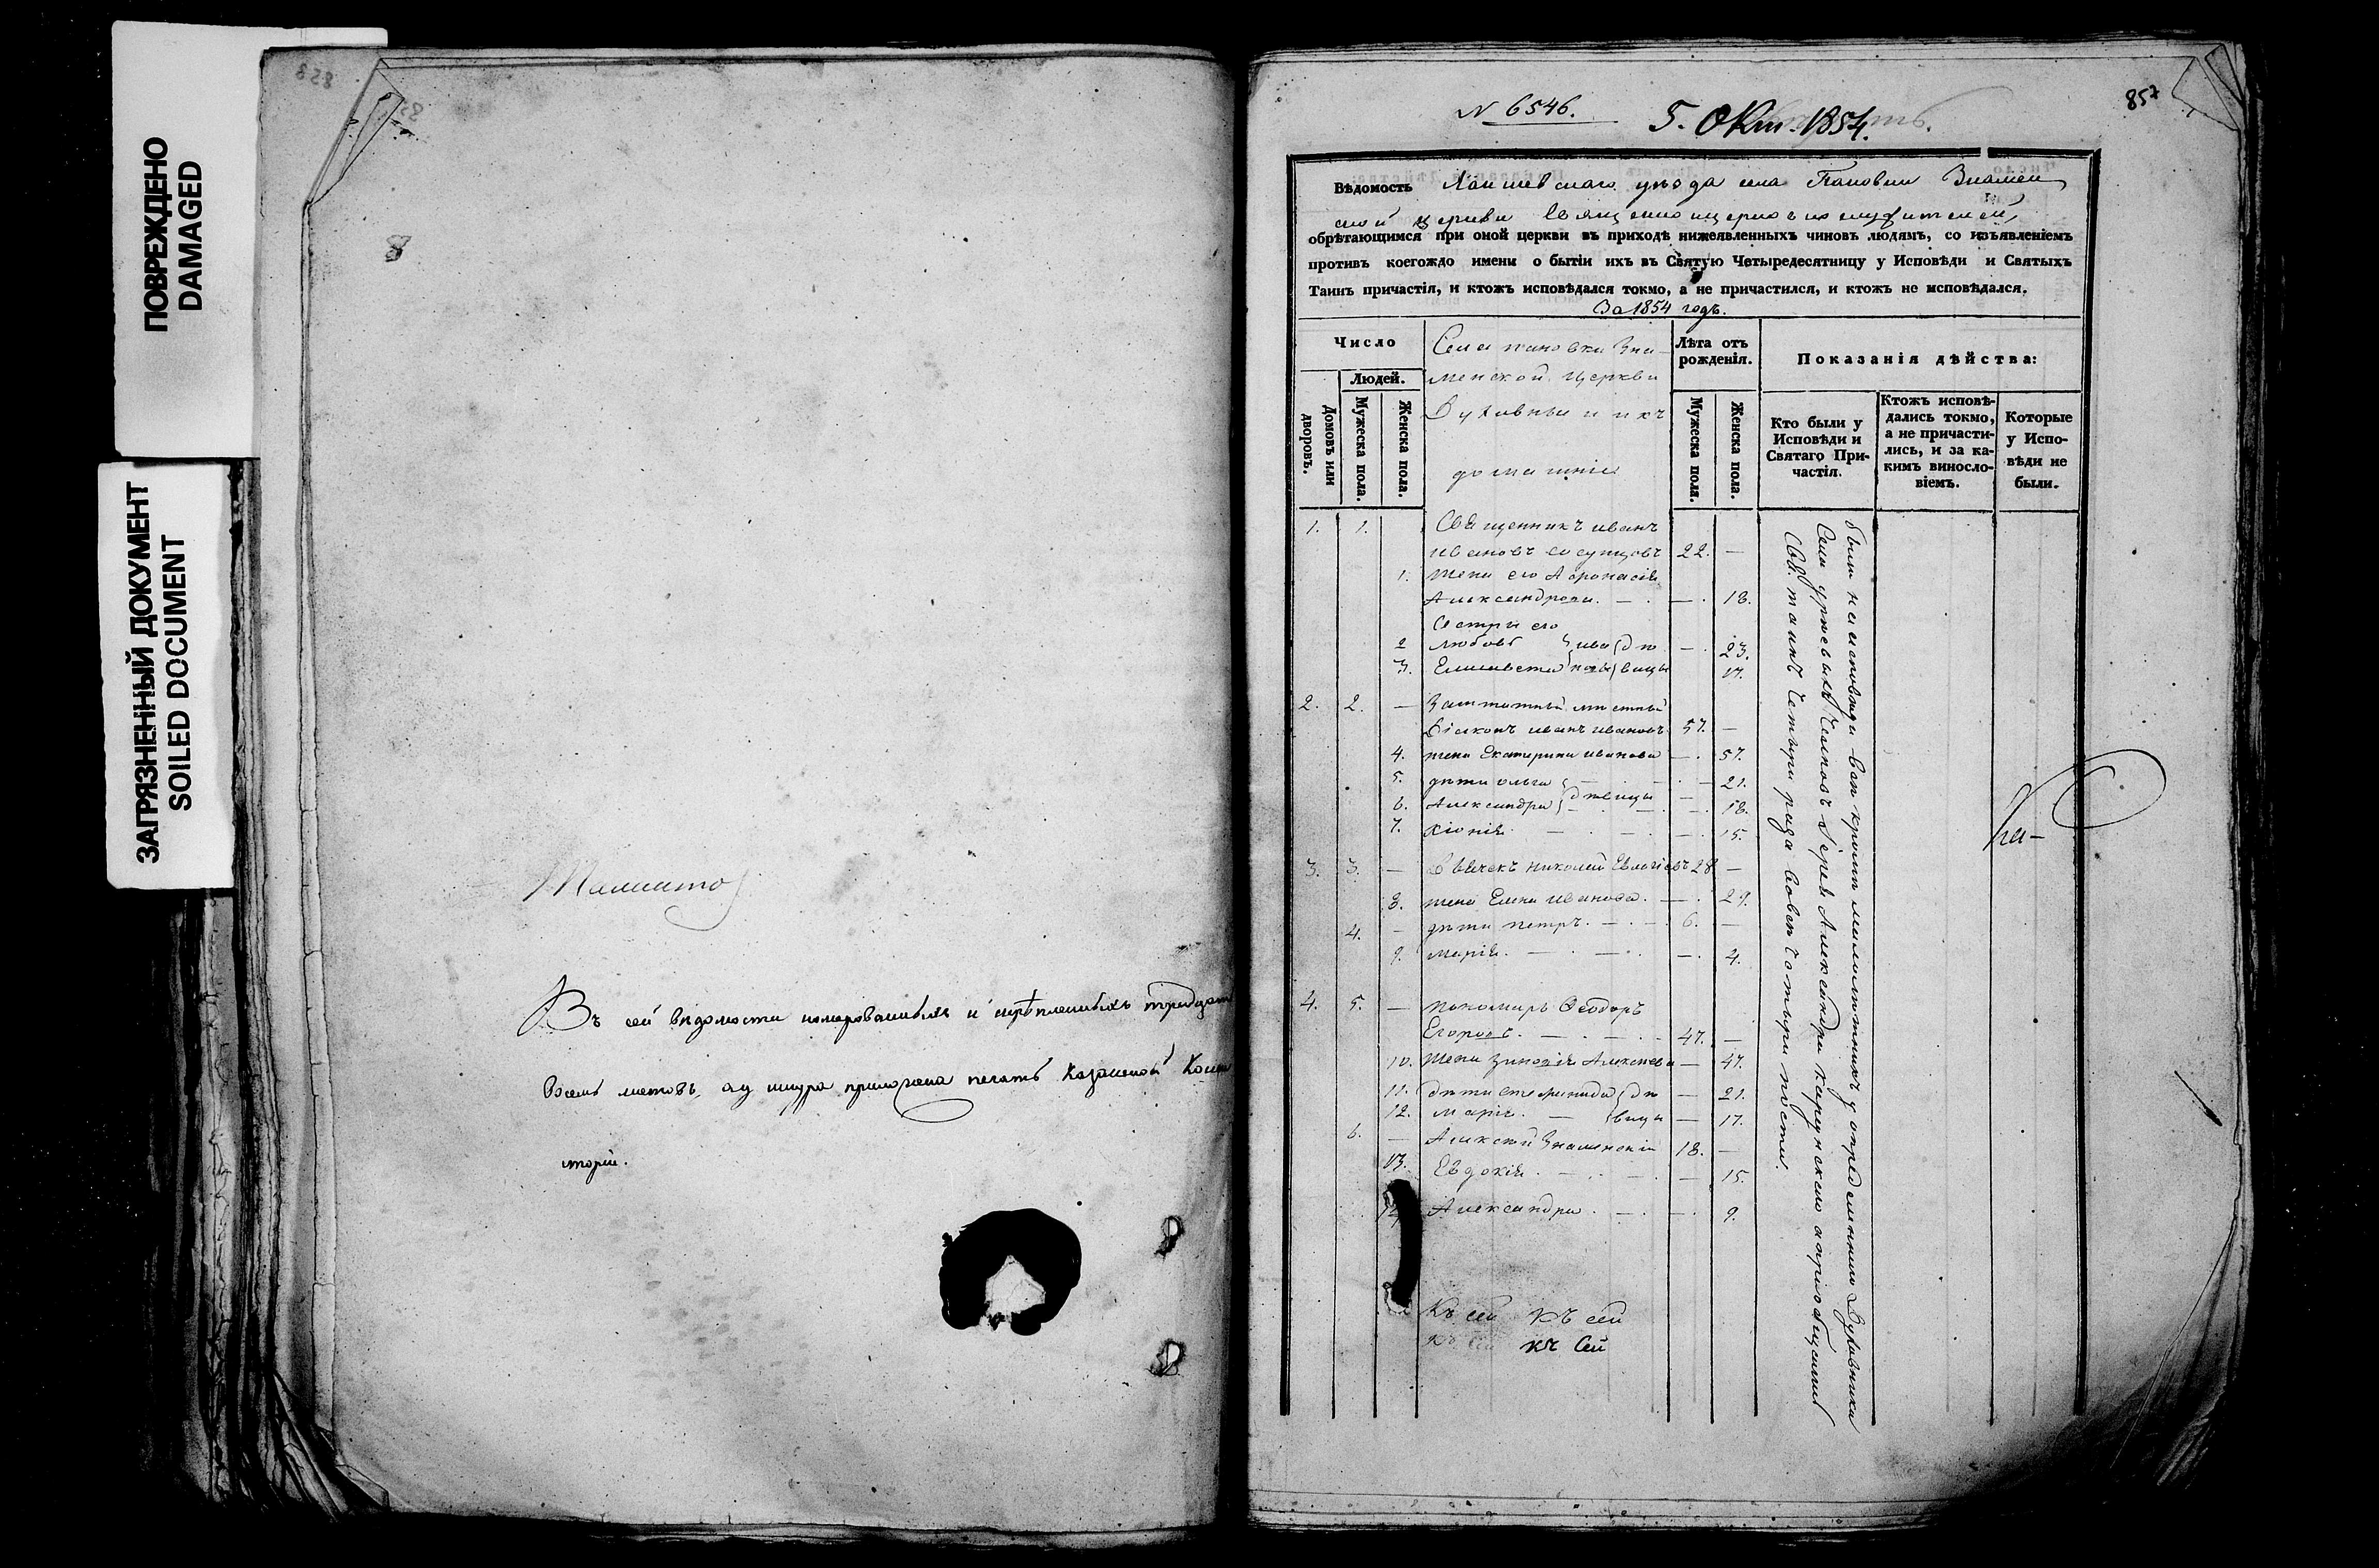 ПОВРЕЖДЕНО
DAMAGED
ЗАГРЯЗНЕННЫЙ ДОКУМЕНТ
SOILED DOCUMENT
8
Въ сей вѣдомости номерованныхъ и скрѣпленныхъ тридцать
восемь листовъ, а у шнура приложена печать Казанской Конси
сторіи.
857
N 6546.
5. Окт. 1854.
Вѣдомость Лаишевскаго уѣзда села Пановки Знамен
ской церкви священноцерковнослужителей,
обрѣтающимся при оной церкви въ приходѣ нижеявленныхъ чиновъ людямъ, со изъявленіемъ
противъ коегождо имены о бытіи ихъ въ Святую Четыредесятницу у Исповѣди и Святыхъ
Таинъ причастія, и ктожъ исповѣдался токмо, а не причастился, и ктожъ не исповѣдался.
За 1854 годъ.
Число
Людей.
Домовъ или дворовъ.
Мужеска пола.
Женска пола.
Села пановки Зна-
менской церкви
Духовныи и ихъ
домашніе
Лѣта отъ рожденія.
Мужеска пола.
Женска пола.
Показанія дѣйства:
Кто были у Исповѣди и Святаго При-частія.
Ктожъ исповѣ-дались токмо, а не причасти-лись, и за ка-кимъ винословіемъ.
Которые у Испо-вѣди не были.
1. 1. Священникъ иванъ
ивановъ 22. —
1. жена его Афонасія
Александрова. — 18.
Сестры его
2 любовь ива дѣ — 23.
3. Елисавета новы вицы 17.
2. 2. — Заштатный
Діаконъ иванъ ивановъ 57. —
4. жена Екатерина иванова — 57.
5. дѣти ольга — 21.
6. Александра дѣвицы — 18.
7. хіонія — 15.
3. 3. — Дьячекъ николай Евлогіевъ 28 —
8. жена Елена иванова. — 29.
4. — дѣти петръ. — 6. —
9. марія. — 4.
4. 5. — пономарь Ѳеодоръ
Егоровъ. — 47. —
10. жена зиновія Алексѣева — 47.
11. дѣти дѣ — 21.
12. марія. — вицы — 17.
6. — Алексѣй Знаменскій 18. —
13. Евдокія — 15.
14 Александра — 9.
были на исповѣди Вси кромѣ у опредѣленнаго Духовника
Села Іерея Александра и пріобщались
Свя. таинъ четыри раза вовсѣ четыри посты.
Къ сей къ сей
къ сей къ Сей
Ка-